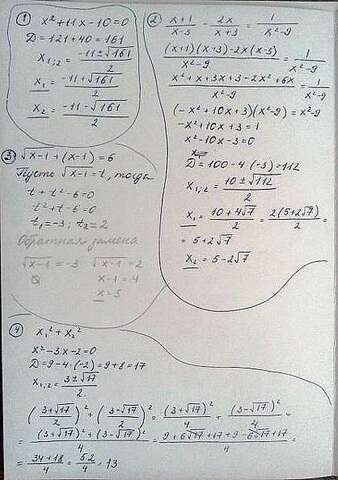 ① x²+11x-10=0
D=121+40=161
x₁,₂=(-11±√161)/2
x₁=(-11+√161)/2
x₂=(-11-√161)/2
② (x+1)/(x-3) - 2x/(x+3) = 1/(x²-9)
((x+1)(x+3)-2x(x-3))/(x²-9) = 1/(x²-9)
(x²+x+3x+3-2x²+6x)/(x²-9) = 1/(x²-9)
(-x²+10x+3)(x²-9)=x²-9
-x²+10x+3=1
x²-10x-3=0
D=100-4·(-3)=112
x₁,₂=(10±√112)/2
x₁=(10+4√7)/2=2(5+2√7)/2=
=5+2√7
x₂=5-2√7
③ √x-1+(x-1)=6
Пусть √x-1=t, тогда
t+t²-6=0
t²+t-6=0
t₁=-3; t₂=2
Обратная замена
√x-1=-3 √x-1=2
x-1=4
x=5
④ x₁²+x₂²
x²-3x-2=0
D=9-4·(-2)=9+8=17
x₁,₂=(3±√17)/2
((3+√17)/2)²+((3-√17)/2)²=(3+√17)²/4+(3-√17)²/4=
=((3+√17)²+(3-√17)²)/4=(9+6√17+17+9-6√17+17)/4=
=(34+18)/4=52/4=13